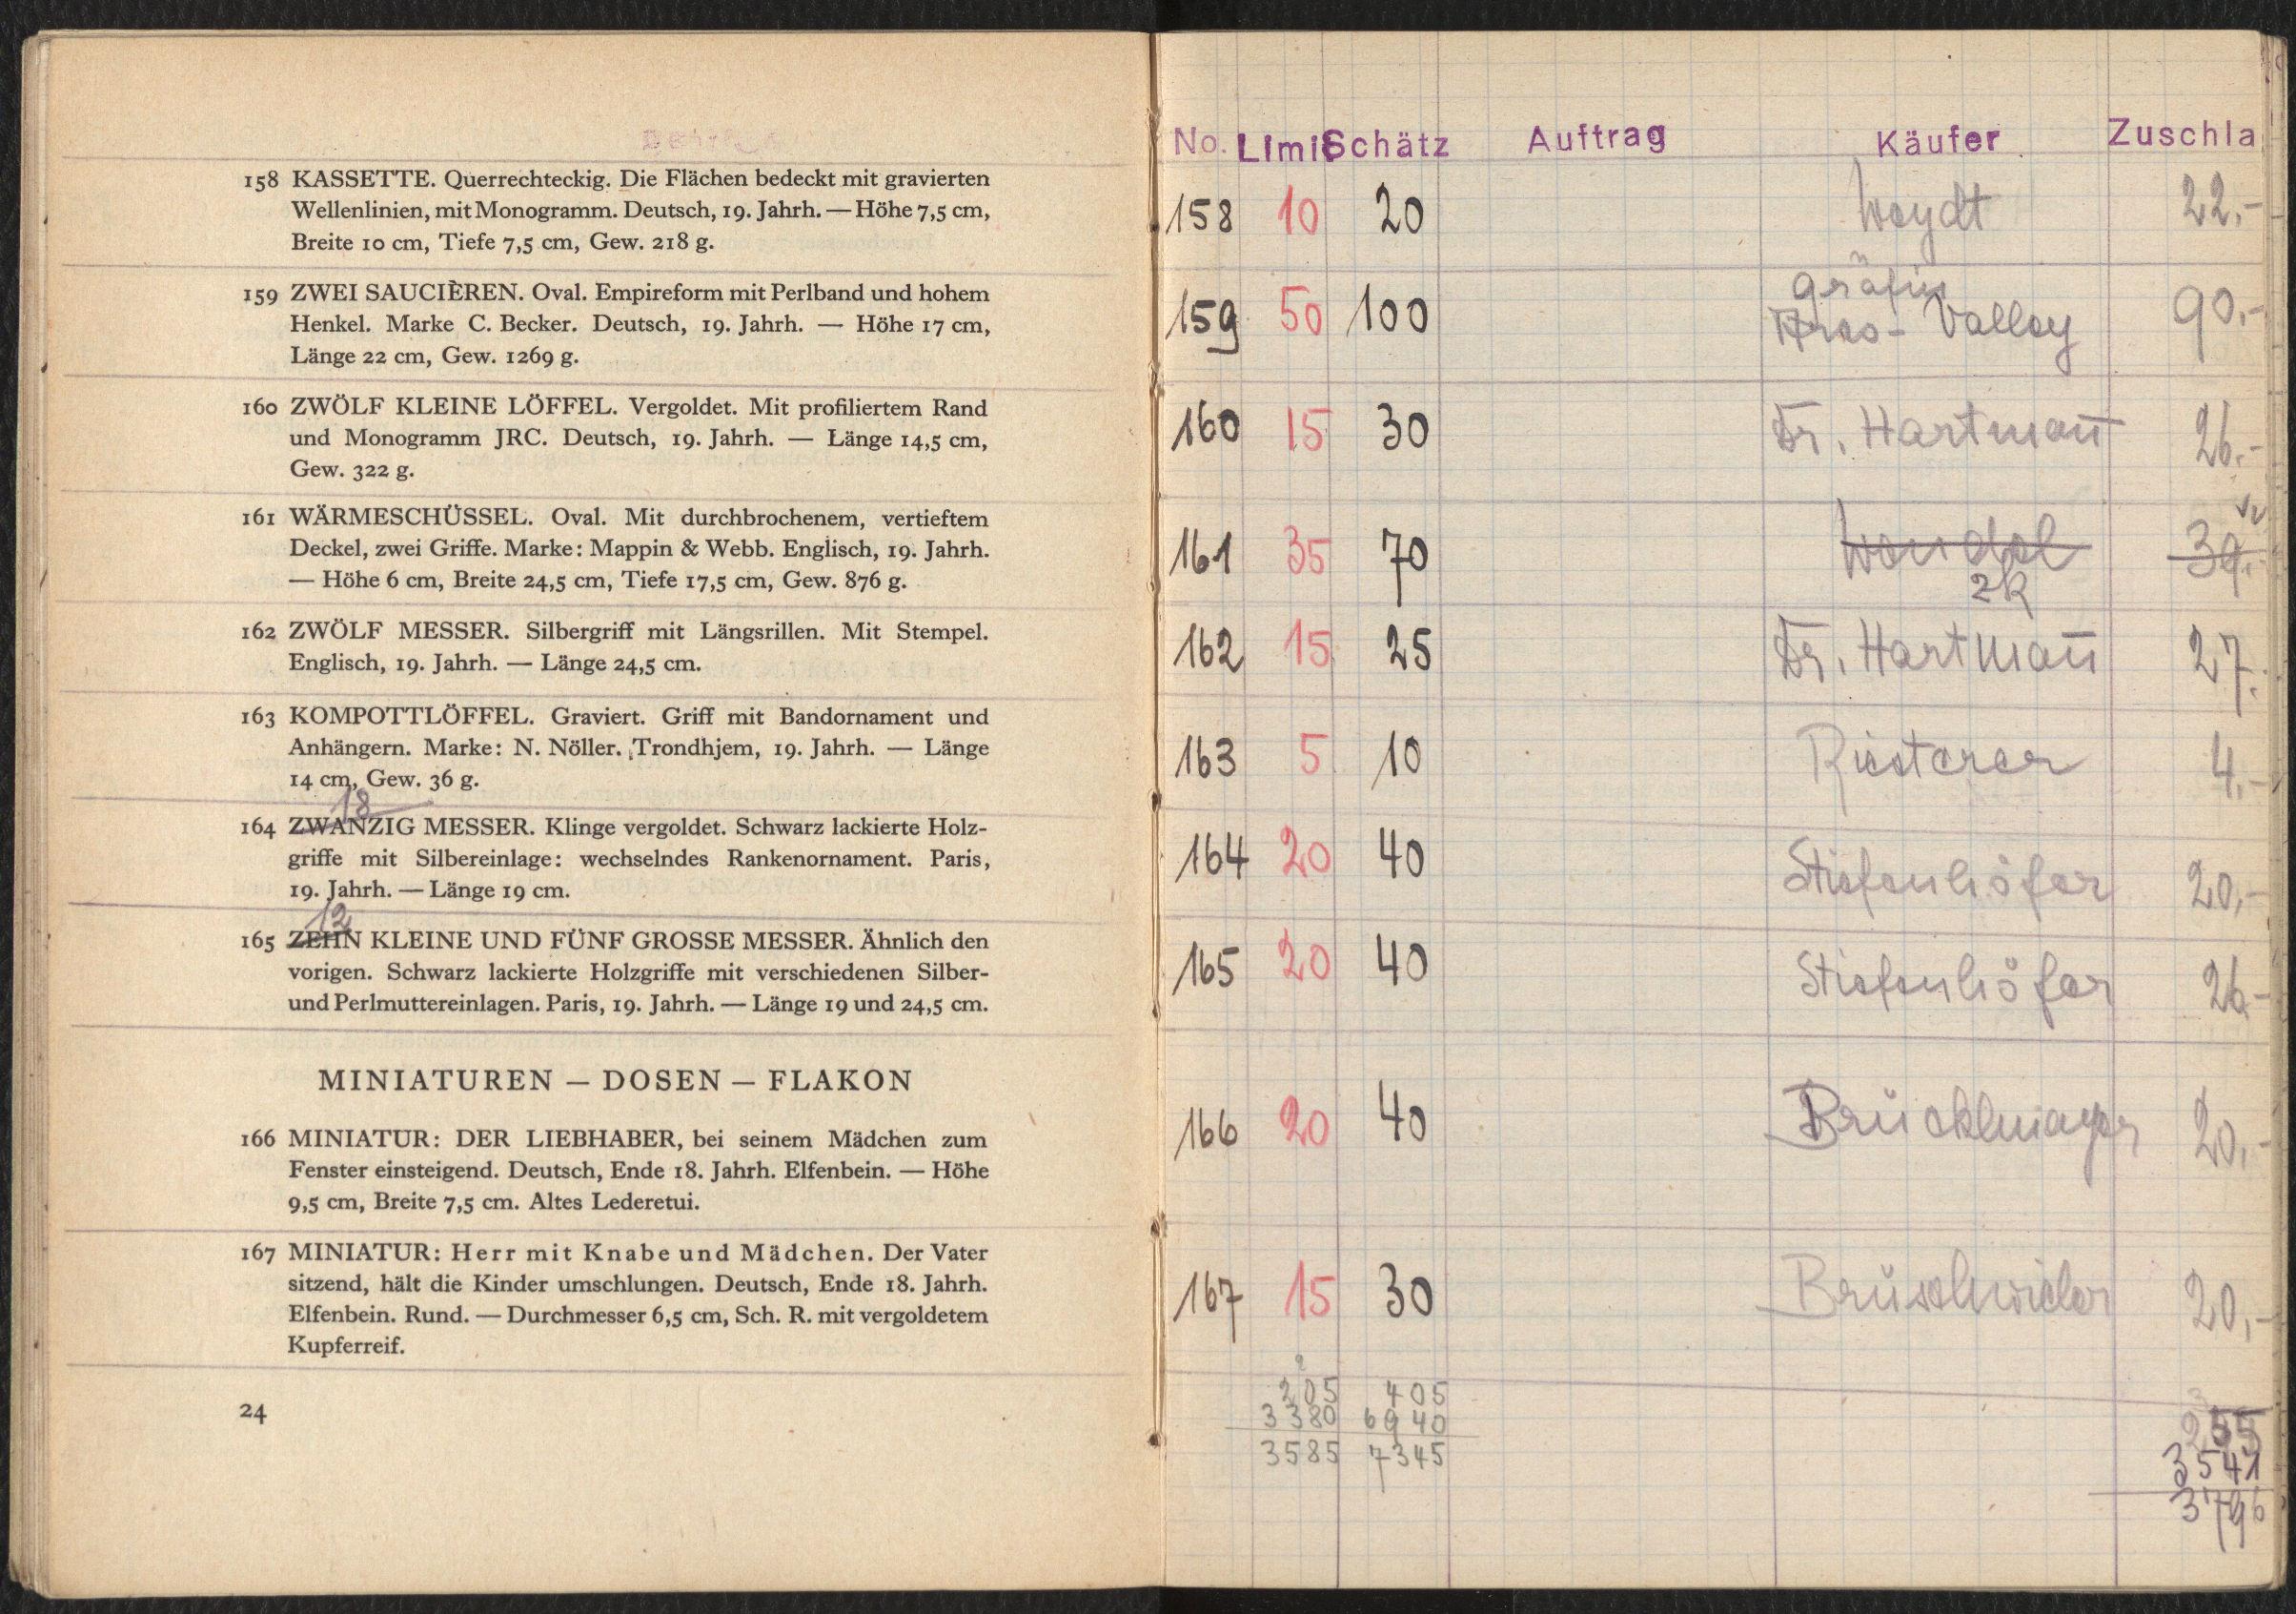 158 KASSETTE. Querrechteckig. Die Flächen bedeckt mit gravierten
Wellenlinien, mit Monogramm. Deutsch, 19. Jahrh. — Höhe 7,5 cm,
Breite 10 cm, Tiefe 7,5 cm, Gew. 218 g.
159 ZWEI SAUCIÈREN. Oval. Empireform mit Perlband und hohem
Henkel. Marke C. Becker. Deutsch, 19. Jahrh. — Höhe 17 cm,
Länge 22 cm, Gew. 1269 g.
160 ZWÖLF KLEINE LÖFFEL. Vergoldet. Mit profiliertem Rand
und Monogramm JRC. Deutsch, 19. Jahrh. — Länge 14,5 cm,
Gew. 322 g.
161 WÄRMESCHÜSSEL. Oval. Mit durchbrochenem, vertieftem
Deckel, zwei Griffe. Marke: Mappin & Webb. Englisch, 19. Jahrh.
— Höhe 6 cm, Breite 24,5 cm, Tiefe 17,5 cm, Gew. 876 g.
162 ZWÖLF MESSER. Silbergriff mit Längsrillen. Mit Stempel.
Englisch, 19. Jahrh. — Länge 24,5 cm.
163 KOMPOTTLÖFFEL. Graviert. Griff mit Bandornament und
Anhängern. Marke: N. Nöller. Trondhjem, 19. Jahrh. — Länge
14 cm, Gew. 36 g.
18
164 ZWANZIG MESSER. Klinge vergoldet. Schwarz lackierte Holz-
griffe mit Silbereinlage: wechselndes Rankenornament. Paris,
19. Jahrh. — Länge 19 cm.
12
165 ZEHN KLEINE UND FÜNF GROSSE MESSER. Ähnlich den
vorigen. Schwarz lackierte Holzgriffe mit verschiedenen Silber-
und Perlmuttereinlagen. Paris, 19. Jahrh. — Länge 19 und 24,5 cm.
MINIATUREN — DOSEN — FLAKON
166 MINIATUR: DER LIEBHABER, bei seinem Mädchen zum
Fenster einsteigend. Deutsch, Ende 18. Jahrh. Elfenbein. — Höhe
9,5 cm, Breite 7,5 cm. Altes Lederetui.
167 MINIATUR: Herr mit Knabe und Mädchen. Der Vater
sitzend, hält die Kinder umschlungen. Deutsch, Ende 18. Jahrh.
Elfenbein. Rund. — Durchmesser 6,5 cm, Sch. R. mit vergoldetem
Kupferreif.
24
No. Limit Schätz Auftrag Käufer Zuschla
158 10 20 Weydt 22.-
Gräfin
159 50 100 Valley 90.-
160 15 30 Dr. Hartmann 26.-
161 35 70 Wendel 39.-
2R
162 15 25 Dr. Hartmann 27.
163 5 10 Riesterer 4.-
164 20 40 Stiefenhöfer 20,-
165 20 40 Stiefenhöfer 26.-
166 20 40 Brücklmayer 20,-
167 15 30 Brüschwiler 20,-
205 405 255
3380 6940 3541
3585 7345 3796